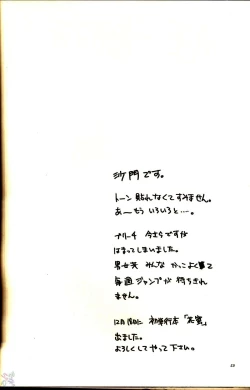 沙門です。
トーン貼れなくてすみません。
あーもういろいろと…。
ブリーチ 今さらですが
はまってしまいました。
男も女も みんな かっこよく見て
毎週ジャンプが 待ちきれ
ません。
12月 初発行本「
出ました。
よろしくしてやって下さい。
23